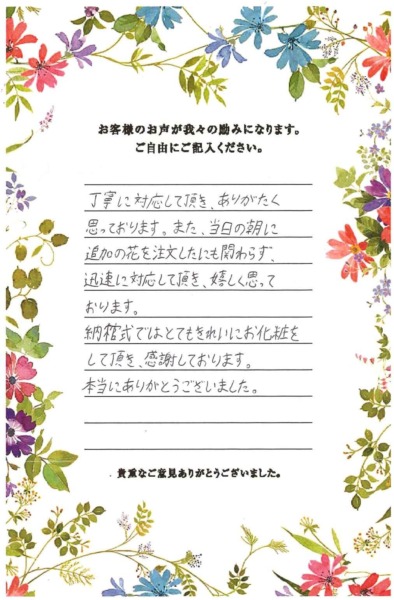 お客様のお声が我々の励みになります。
ご自由にご記入ください。
丁寧に対応して頂き、ありがたく
思っております。また、当日の朝に
追加の花を注文したにも関わらず、
迅速に対応して頂き、嬉しく思って
おります。
納棺式ではとてもきれいにお化粧を
して頂き、感謝しております。
本当にありがとうございました。
貴重なご意見ありがとうございました。